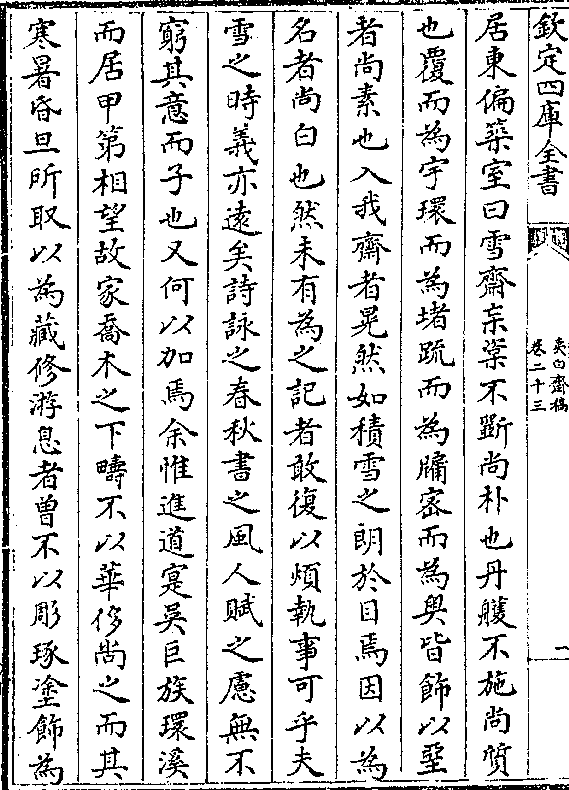 欽定四庫全書
夷白齋稿
卷二十三
一
居東偏築室曰雪齋宗棠不斵尚朴也丹雘不施尚質
也覆而為宇環而為堵疏而為牗宻而為奥皆飾以堊
者尚素也入我齋者晃然如積雪之朗於目焉因以為
名者尚白也然未有為之記者敢復以煩執事可乎夫
雪之時義亦逺矣詩詠之春秋書之風人賦之慮無不
窮其意而子也又何以加焉余惟進道寔吳巨族環溪
而居甲第相望故家喬木之下疇不以華侈尚之而其
寒暑昏旦所取以為藏修游息者曽不以彫琢塗飾為